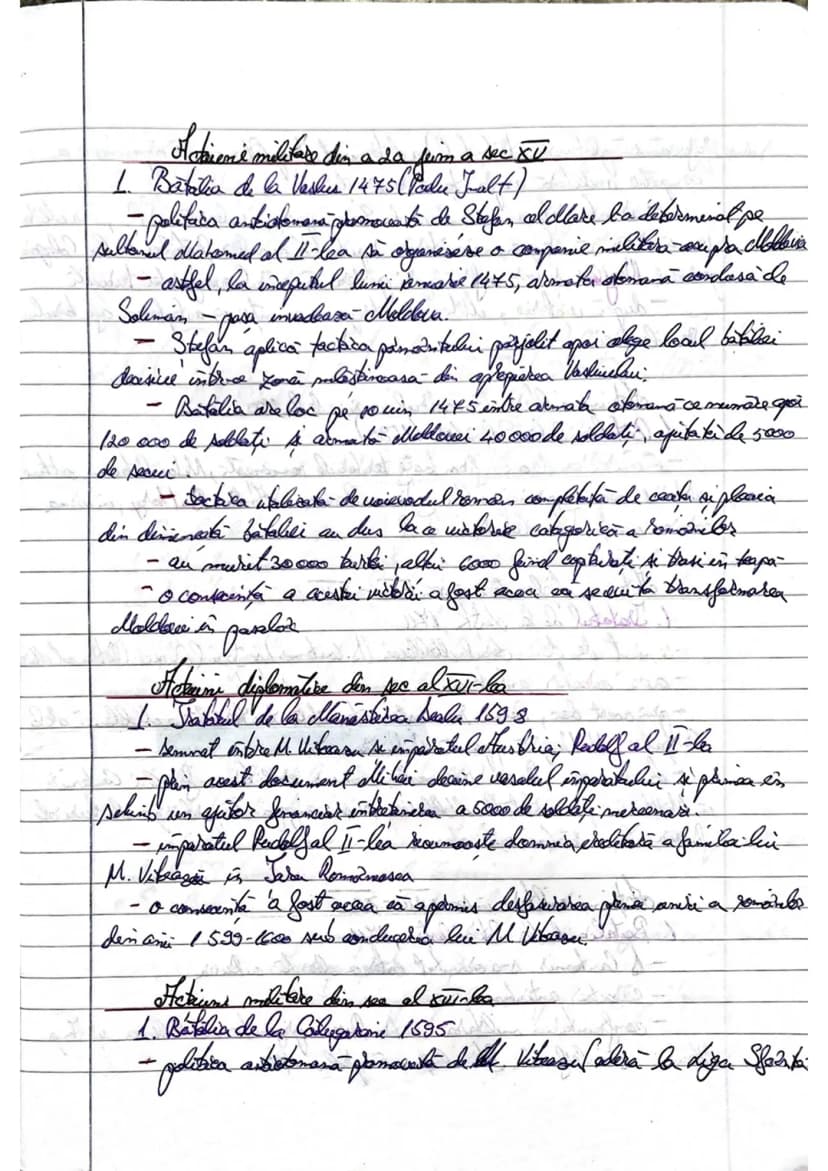 Acțiuni militare din a 2a jum a sec XV
1. Bătălia de la Vaslui 1475 (Podu Înalt)
- politica antiotomană promovată de Ștefan cel Mare l-a determinat pe
sultanul Mahomed al II-lea să organizeze o campanie militară asupra Moldova
- astfel, la începutul lunii ianuarie 1475, armata otomană condusă de
Soliman - pașa invadează Moldova.
- Ștefan aplică tactica pământului pârjolit apoi alege locul bătăliei
decisive într-o zonă mlăștinoasă din apropierea Vasluiului.
- Bătălia are loc pe 10 ian 1475 între armata otomană ce număra
120 000 de soldați și armata Moldovei 40 000 de soldați, ajutați de 5000
de secui.
- tactica utilizată de voievodul român completată de ceața și ploaia
din dimineața bătăliei au dus la o victorie categorică a românilor
- au murit 30 000 turci, alții 6000 fiind capturați și trași în țeapă
- o consecință a acestei victorii a fost aceea că s-a evitat transformarea
Moldovei în pașalâc
Acțiuni diplomatice din sec al XVI-lea
1. Tratatul de la Mănăstirea Dealu 1598
- semnat între M. Viteazu și împăratul Austriei, Rudolf al II-lea
- prin acest document Mihai devine vasalul împăratului și primea în
schimb un ajutor financiar întreținerea a 5000 de soldați mercenari.
- împăratul Rudolf al II-lea recunoaște domnia ereditară a familiei lui
M. Viteazu în Țara Românească
- o consecință a fost aceea că a permis desfășurarea primei uniri a românilor
din anii 1599-1600 sub conducerea lui M Viteazu.
Acțiuni militare din sec al XVI-lea
1. Bătălia de la Călugăreni 1595
- politica antiotomană promovată de M. Viteazu (aderă la Liga Sfântă